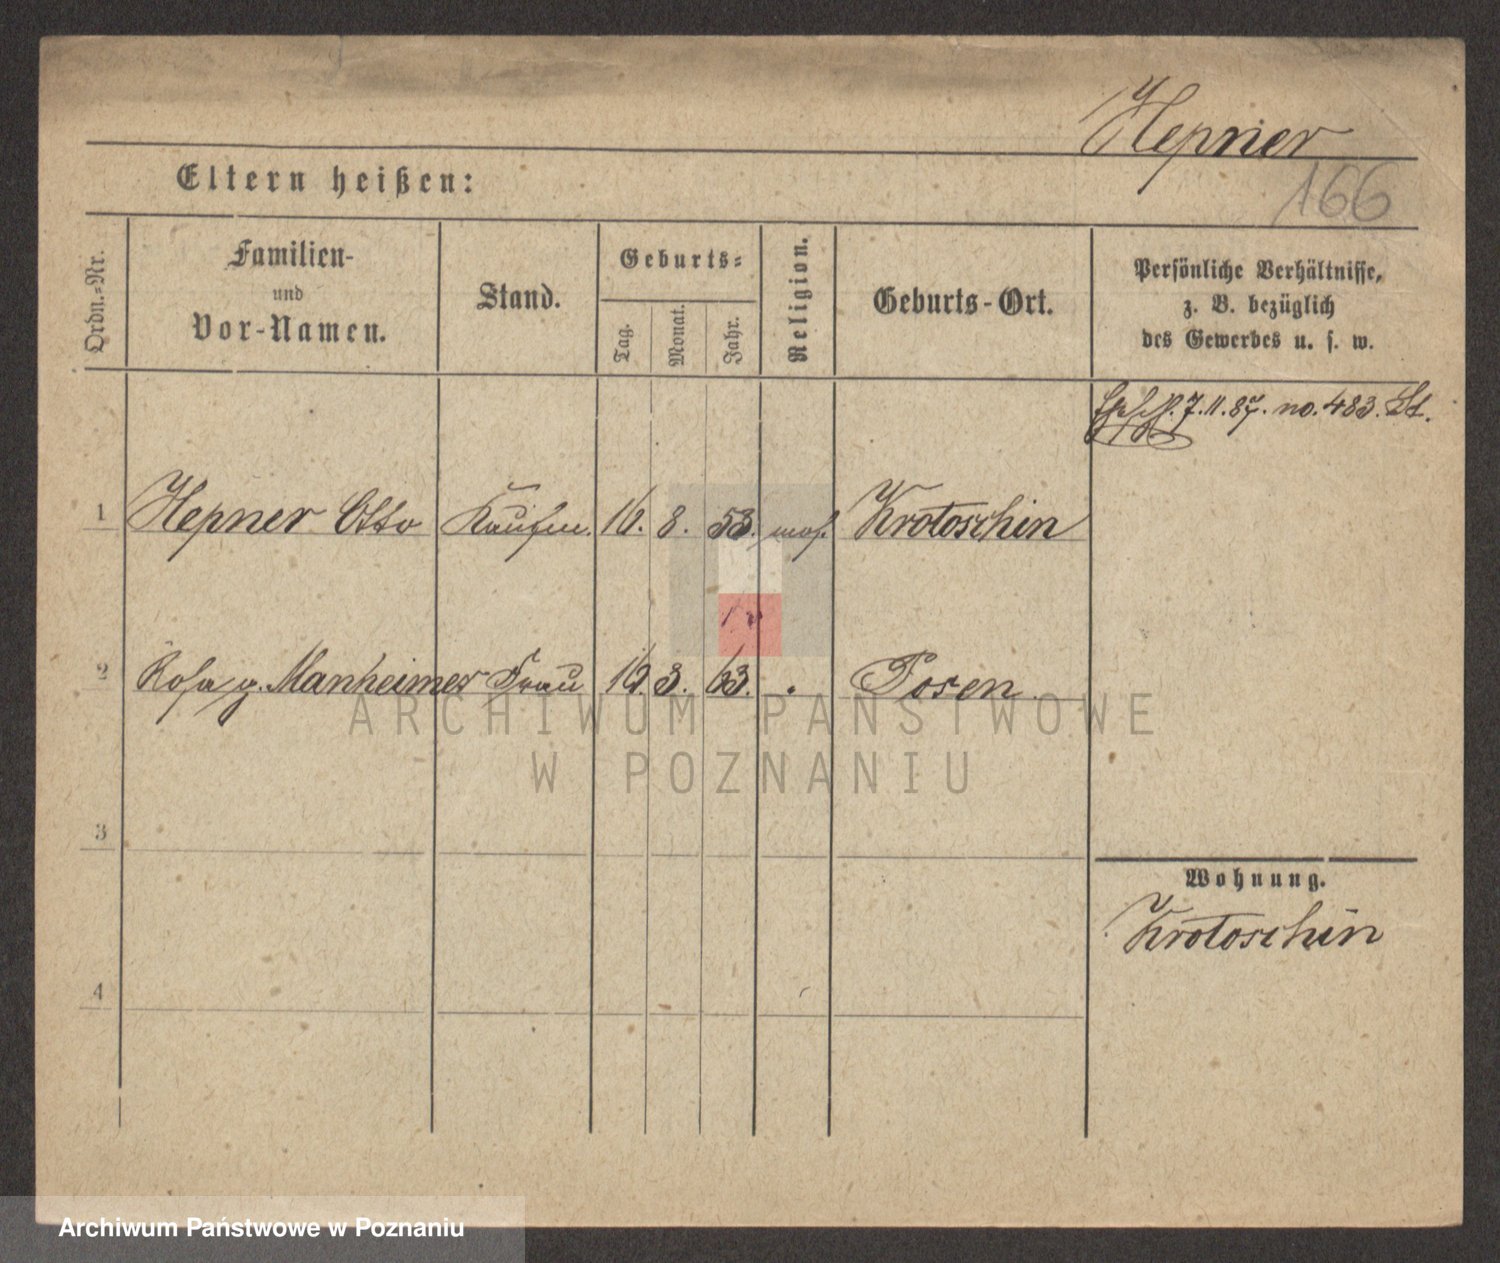 Hepner
166
Eltern heißen:
Ordn.-Nr.
Familien-
und
Vor-Namen.
Stand.
Geburts-
Tag.
Monat.
Jahr.
Religion.
Geburts-Ort.
Persönliche Verhältnisse,
z. B. bezüglich
des Gewerbes u. s. w.
7.11.87. no. 483. St.
1 Hepner Otto Kaufm. 16. 8. 53. mos. Krotoschin
2 Rosa g. Manheimer Frau 8. 63. Posen
ARCHIWUM PAŃSTWOWE
W POZNANIU
3
Wohnung.
Krotoschin
4
Archiwum Państwowe w Poznaniu